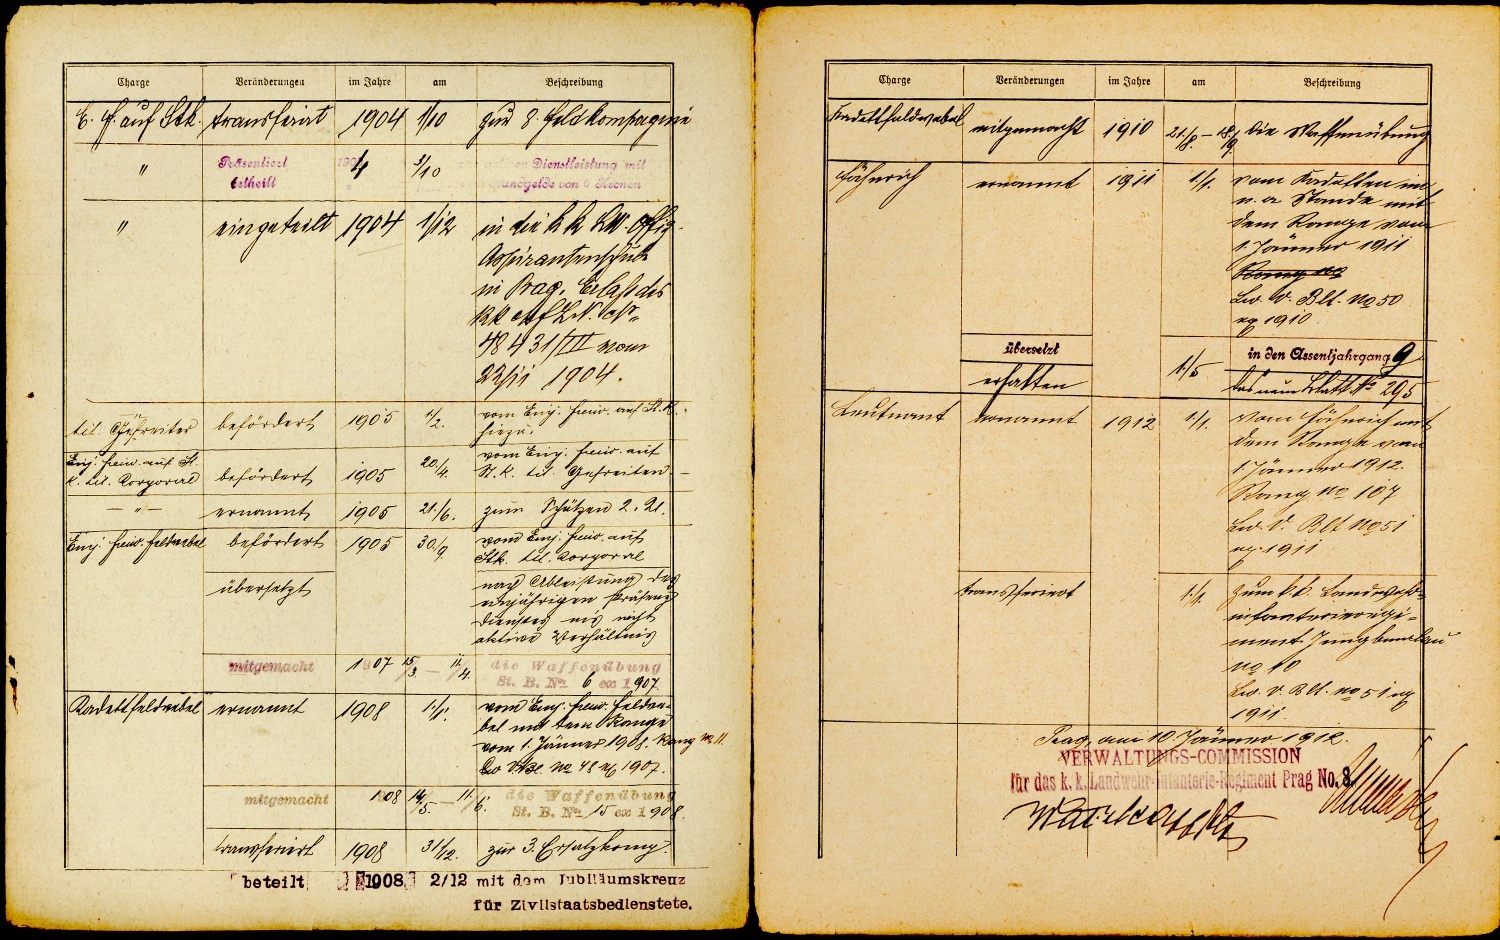 Charge Veränderungen im Jahre am Beschreibung
E. F. auf Stk. transferirt 1904 1/10 zur 8. Feldkompagnie
" Präsentiert 1904 3/10 Dienstleistung mit
betheilt " Handgelde von 6 Kronen
" eingeteilt 1904 1/12 in die k k Lw. Offiz.
Aspirantenschule
in Prag, Erlaß des
kk
48431/III vom
22/11 1904.
tit. Gefreiter befördert 1905 1./2. vom Einj. freiw. auf St. K.
hiezu.
Einj. freiw. auf St.
K. tit. Corporal befördert 1905 20./4. vom Einj. freiw. auf
St. K. tit. Gefreiten
— " — ernannt 1905 21./6. zum Schützen 2. Cl.
Einj. freiw. Feldwebel befördert 1905 30./9. vom Einj. freiw. auf
Stk. tit. Corporal
übersetzt nach Ableistung des
einjährigen Präsenz
dienstes ins nicht
aktive Verhältnis
mitgemacht 1907 15/3. — 11/4. die Waffenübung
St. B. No. 6 ex 1907
Kadettfeldwebel ernannt 1908 1./1. vom Einj. freiw. Feldwe-
bel mit dem Range
vom 1. Jänner 1908. Rang No 11.
Lw V.Bl. No 48 ex 1907.
mitgemacht 1908 14/5. — 11/6. die Waffenübung
St. B. No. 15 ex 1908.
transferiert 1908 31/12. zur 3. Ersatzkomp.
beteilt 1908 2/12 mit dem Jubiläumskreuz
für Zivilstaatsbedienstete.
Charge Veränderungen im Jahre am Beschreibung
Kadettfeldwebel mitgemacht 1910 21./8. – 18./9. die Waffenübung
Fähnrich ernannt 1911 1./1. vom Kadetten im
n. a Stande mit
dem Range vom
1. Jänner 1911
Rang No
Lw. V. Blt. No 50
ex 1910
übersetzt 1/5 in den Assentjahrgang 9
erhalten das neue Blatt No 295
Leutnant ernannt 1912 1./1. vom Fähnrich mit
dem Range vom
1. Jänner 1912.
Rang No 107
Lw. V. Blt No 51
ex 1911
transferiert 1./1. zum k.k. Landwehr-
infanterieregi-
ment Jungbunzlau
No 10
Lw. V. Blt. No 51 ex
1911.
Prag, am 10. Jänner 1912.
VERWALTUNGS-COMMISSION
für das k. k. Landwehr-Infanterie-Regiment Prag No. 8.